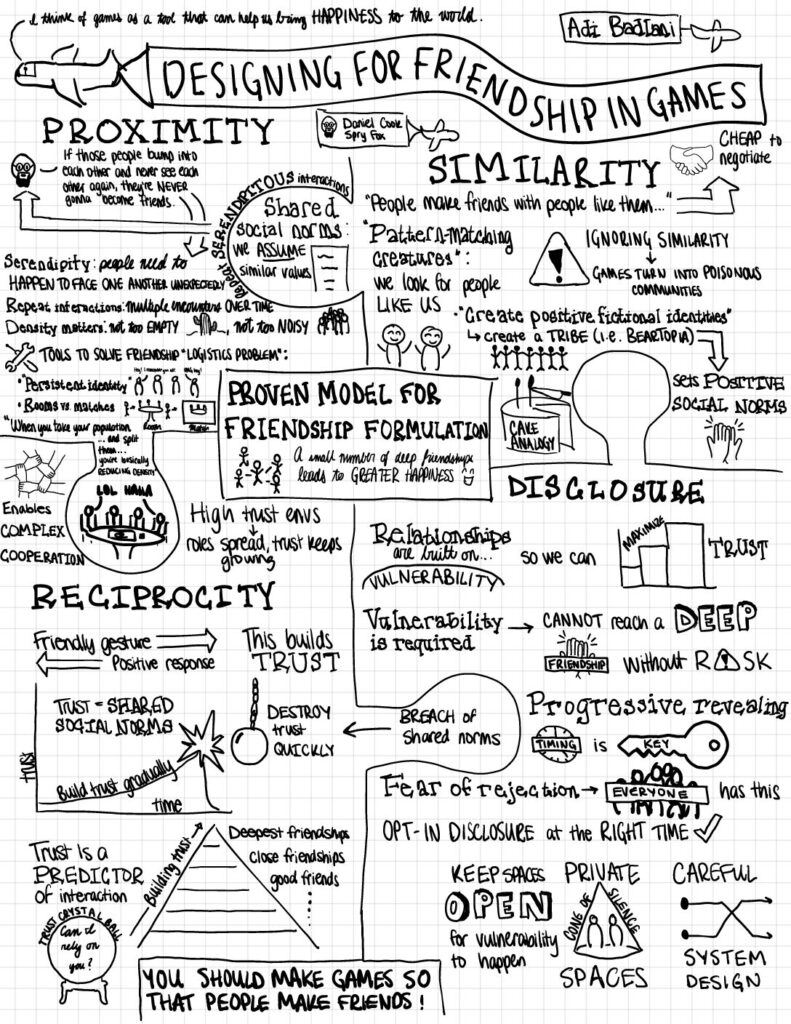 I think of games as a tool that can help us bring HAPPINESS to the world.
Adi Badlani
DESIGNING FOR FRIENDSHIP IN GAMES
Daniel Cook
Spry Fox
PROXIMITY
If those people bump into
each other and never see each
other again, they're NEVER
gonna become friends.
Repeat SERENDIPITOUS interactions
Shared
social norms:
we ASSUME
similar values
Serendipity: people need to
HAPPEN TO FACE ONE ANOTHER UNEXPECTEDLY
Repeat interactions: multiple encounters OVER TIME
Density matters: not too EMPTY, not too NOISY
TOOLS TO SOLVE FRIENDSHIP "LOGISTICS PROBLEM":
• "Persistent identity"
• Rooms vs. matches
Room
Match
"When you take your population
... and split
them...
you're basically
REDUCING DENSITY"
LOL HAHA
Enables
COMPLEX
COOPERATION
High trust envs
roles spread, trust keeps
growing
SIMILARITY
CHEAP to
negotiate
"People make friends with people like them..."
"Pattern-matching
creatures":
we look for people
LIKE US
!
IGNORING SIMILARITY
GAMES TURN INTO POISONOUS
COMMUNITIES
• "Create positive fictional identities"
create a TRIBE (i.e. BEARTOPIA)
sets POSITIVE
SOCIAL NORMS
CAKE
ANALOGY
PROVEN MODEL FOR
FRIENDSHIP FORMULATION
A small number of deep friendships
leads to GREATER HAPPINESS
DISCLOSURE
Relationships
are built on...
VULNERABILITY
so we can
MAXIMIZE
TRUST
Vulnerability
is required
CANNOT reach a DEEP
FRIENDSHIP
without RISK
Progressive revealing
TIMING
is
KEY
Fear of rejection
EVERYONE
has this
OPT-IN DISCLOSURE at the RIGHT TIME
KEEP SPACES
OPEN
for vulnerability
to happen
PRIVATE
CONE OF SILENCE
SPACES
CAREFUL
SYSTEM
DESIGN
RECIPROCITY
Friendly gesture
Positive response
This builds
TRUST
TRUST = SHARED
SOCIAL NORMS
Build trust gradually
trust
time
DESTROY
trust
QUICKLY
BREACH OF
shared norms
Trust is a
PREDICTOR
of interaction
TRUST CRYSTAL BALL
Can I
rely on
you?
Building trust
Deepest friendships
close friendships
good friends
YOU SHOULD MAKE GAMES SO
THAT PEOPLE MAKE FRIENDS!